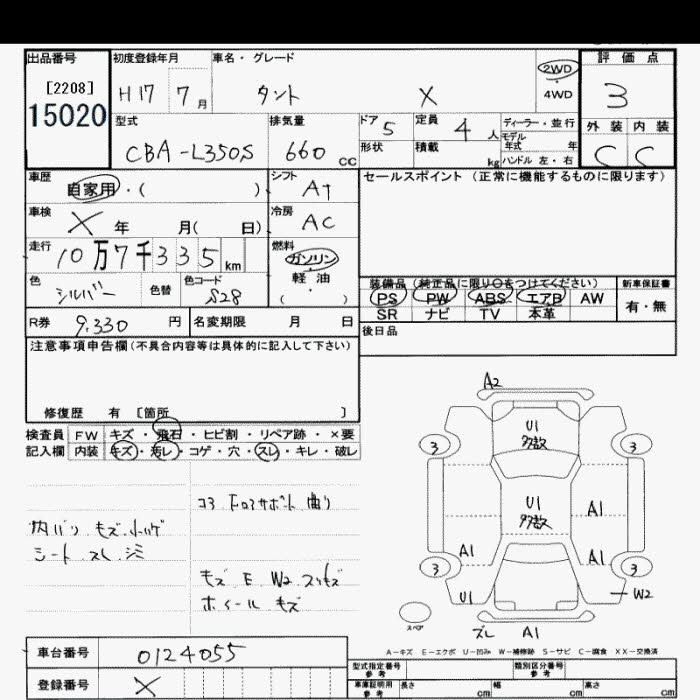 出品番号 初度登録年月 車名・グレード 2WD 評価点
[2208] H17 7月 タント X 4WD 3
15020
型式 排気量 ドア 5 定員 4 人 ディーラー・並行 外装 内装
モデル年式 年
CBA-L350S 660 cc 形状 積載 kg ハンドル 左・右 C C
車歴 自家用・( ) シフト AT セールスポイント (正常に機能するものに限ります)
車検 X 年 月( 日) 冷房 AC
走行 10万7千335 km 燃料 ガソリン・軽油 ( )
色 シルバー 色替 色コード S28
装備品 (純正品に限り○をつけてください) 新車保証書
PS PW ABS エアB AW 有・無
SR ナビ TV 本革
R券 9,330 円 名変期限 月 日 後日品
注意事項申告欄(不具合内容等は具体的に記入して下さい)
修復歴 有 [箇所 ]
検査員 FW キズ・飛石・ヒビ割・リペア跡・×要
記入欄 内装 キズ・汚レ・コゲ・穴・スレ・キレ・破レ
コアサポート 曲り
内バリ キズ
シート スレ シミ
キズ E W2
ホイール キズ
A2
U1
多数
3 3
U1
多数
A1
A1 A1
3 3
U1 W2
スペア
ズレ A1
A-キズ E-エクボ U-凹み W-補修跡 S-サビ C-腐食 XX-交換済
車台番号 0124055 型式指定番号 参考 類別区分番号 参考
登録番号 X 車庫証明用 参考 長さ cm 幅 cm 高さ cm